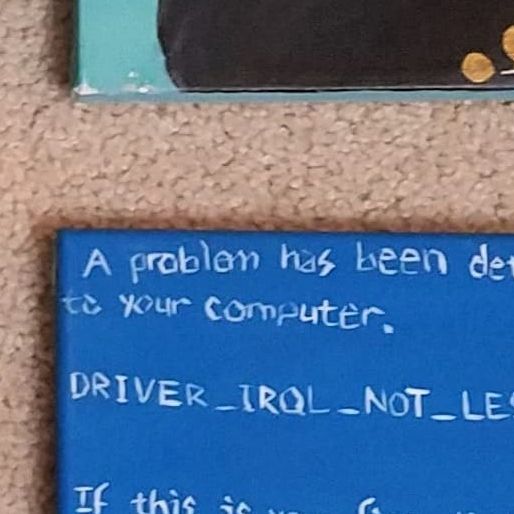 A problem has been det
to your computer.
DRIVER_IRQL_NOT_LES
If this is